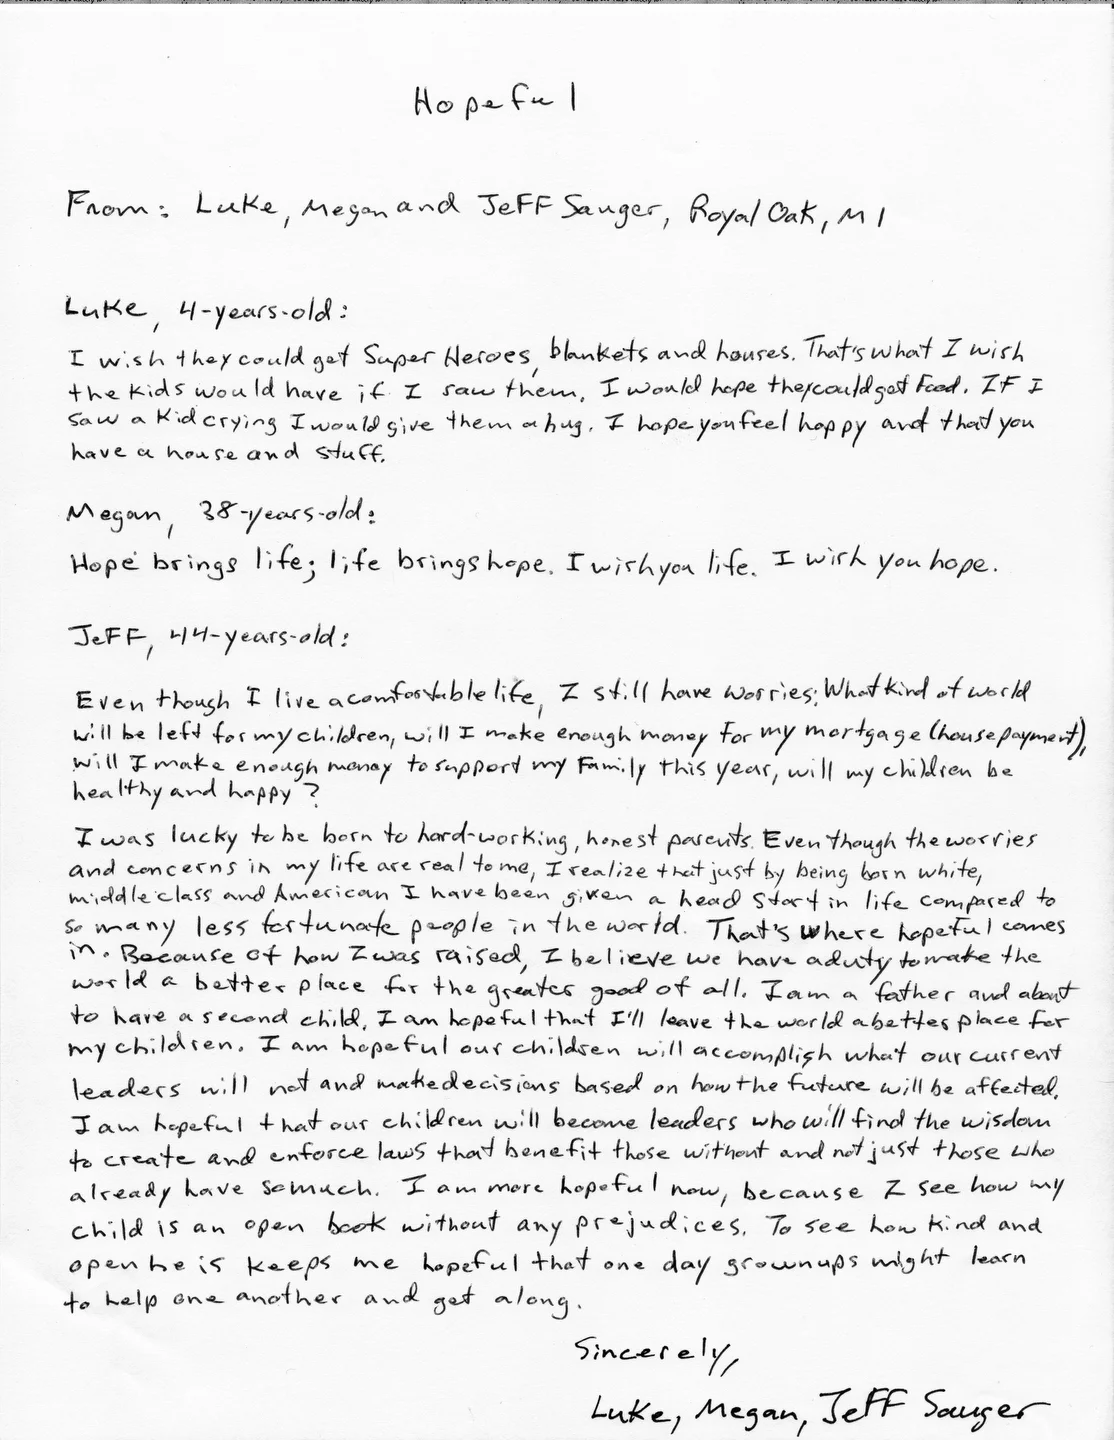 Hopeful
From: Luke, Megan and Jeff Sauger, Royal Oak, MI
Luke, 4-years-old:
I wish they could get Super Heroes, blankets and houses. That's what I wish
the kids would have if I saw them. I would hope they could get food. If I
saw a kid crying I would give them a hug. I hope you feel happy and that you
have a house and stuff.
Megan, 38-years-old:
Hope brings life; life brings hope. I wish you life. I wish you hope.
Jeff, 44-years-old:
Even though I live a comfortable life, I still have worries; What kind of world
will be left for my children, will I make enough money for my mortgage (house payment),
will I make enough money to support my family this year, will my children be
healthy and happy?
I was lucky to be born to hard-working, honest parents. Even though the worries
and concerns in my life are real to me, I realize that just by being born white,
middle class and American I have been given a head start in life compared to
so many less fortunate people in the world. That's where hopeful comes
in. Because of how I was raised, I believe we have a duty to make the
world a better place for the greater good of all. I am a father and about
to have a second child. I am hopeful that I'll leave the world a better place for
my children. I am hopeful our children will accomplish what our current
leaders will not and make decisions based on how the future will be affected.
I am hopeful that our children will become leaders who will find the wisdom
to create and enforce laws that benefit those without and not just those who
already have so much. I am more hopeful now, because I see how my
child is an open book without any prejudices. To see how kind and
open he is keeps me hopeful that one day grownups might learn
to help one another and get along.
Sincerely,
Luke, Megan, Jeff Sauger